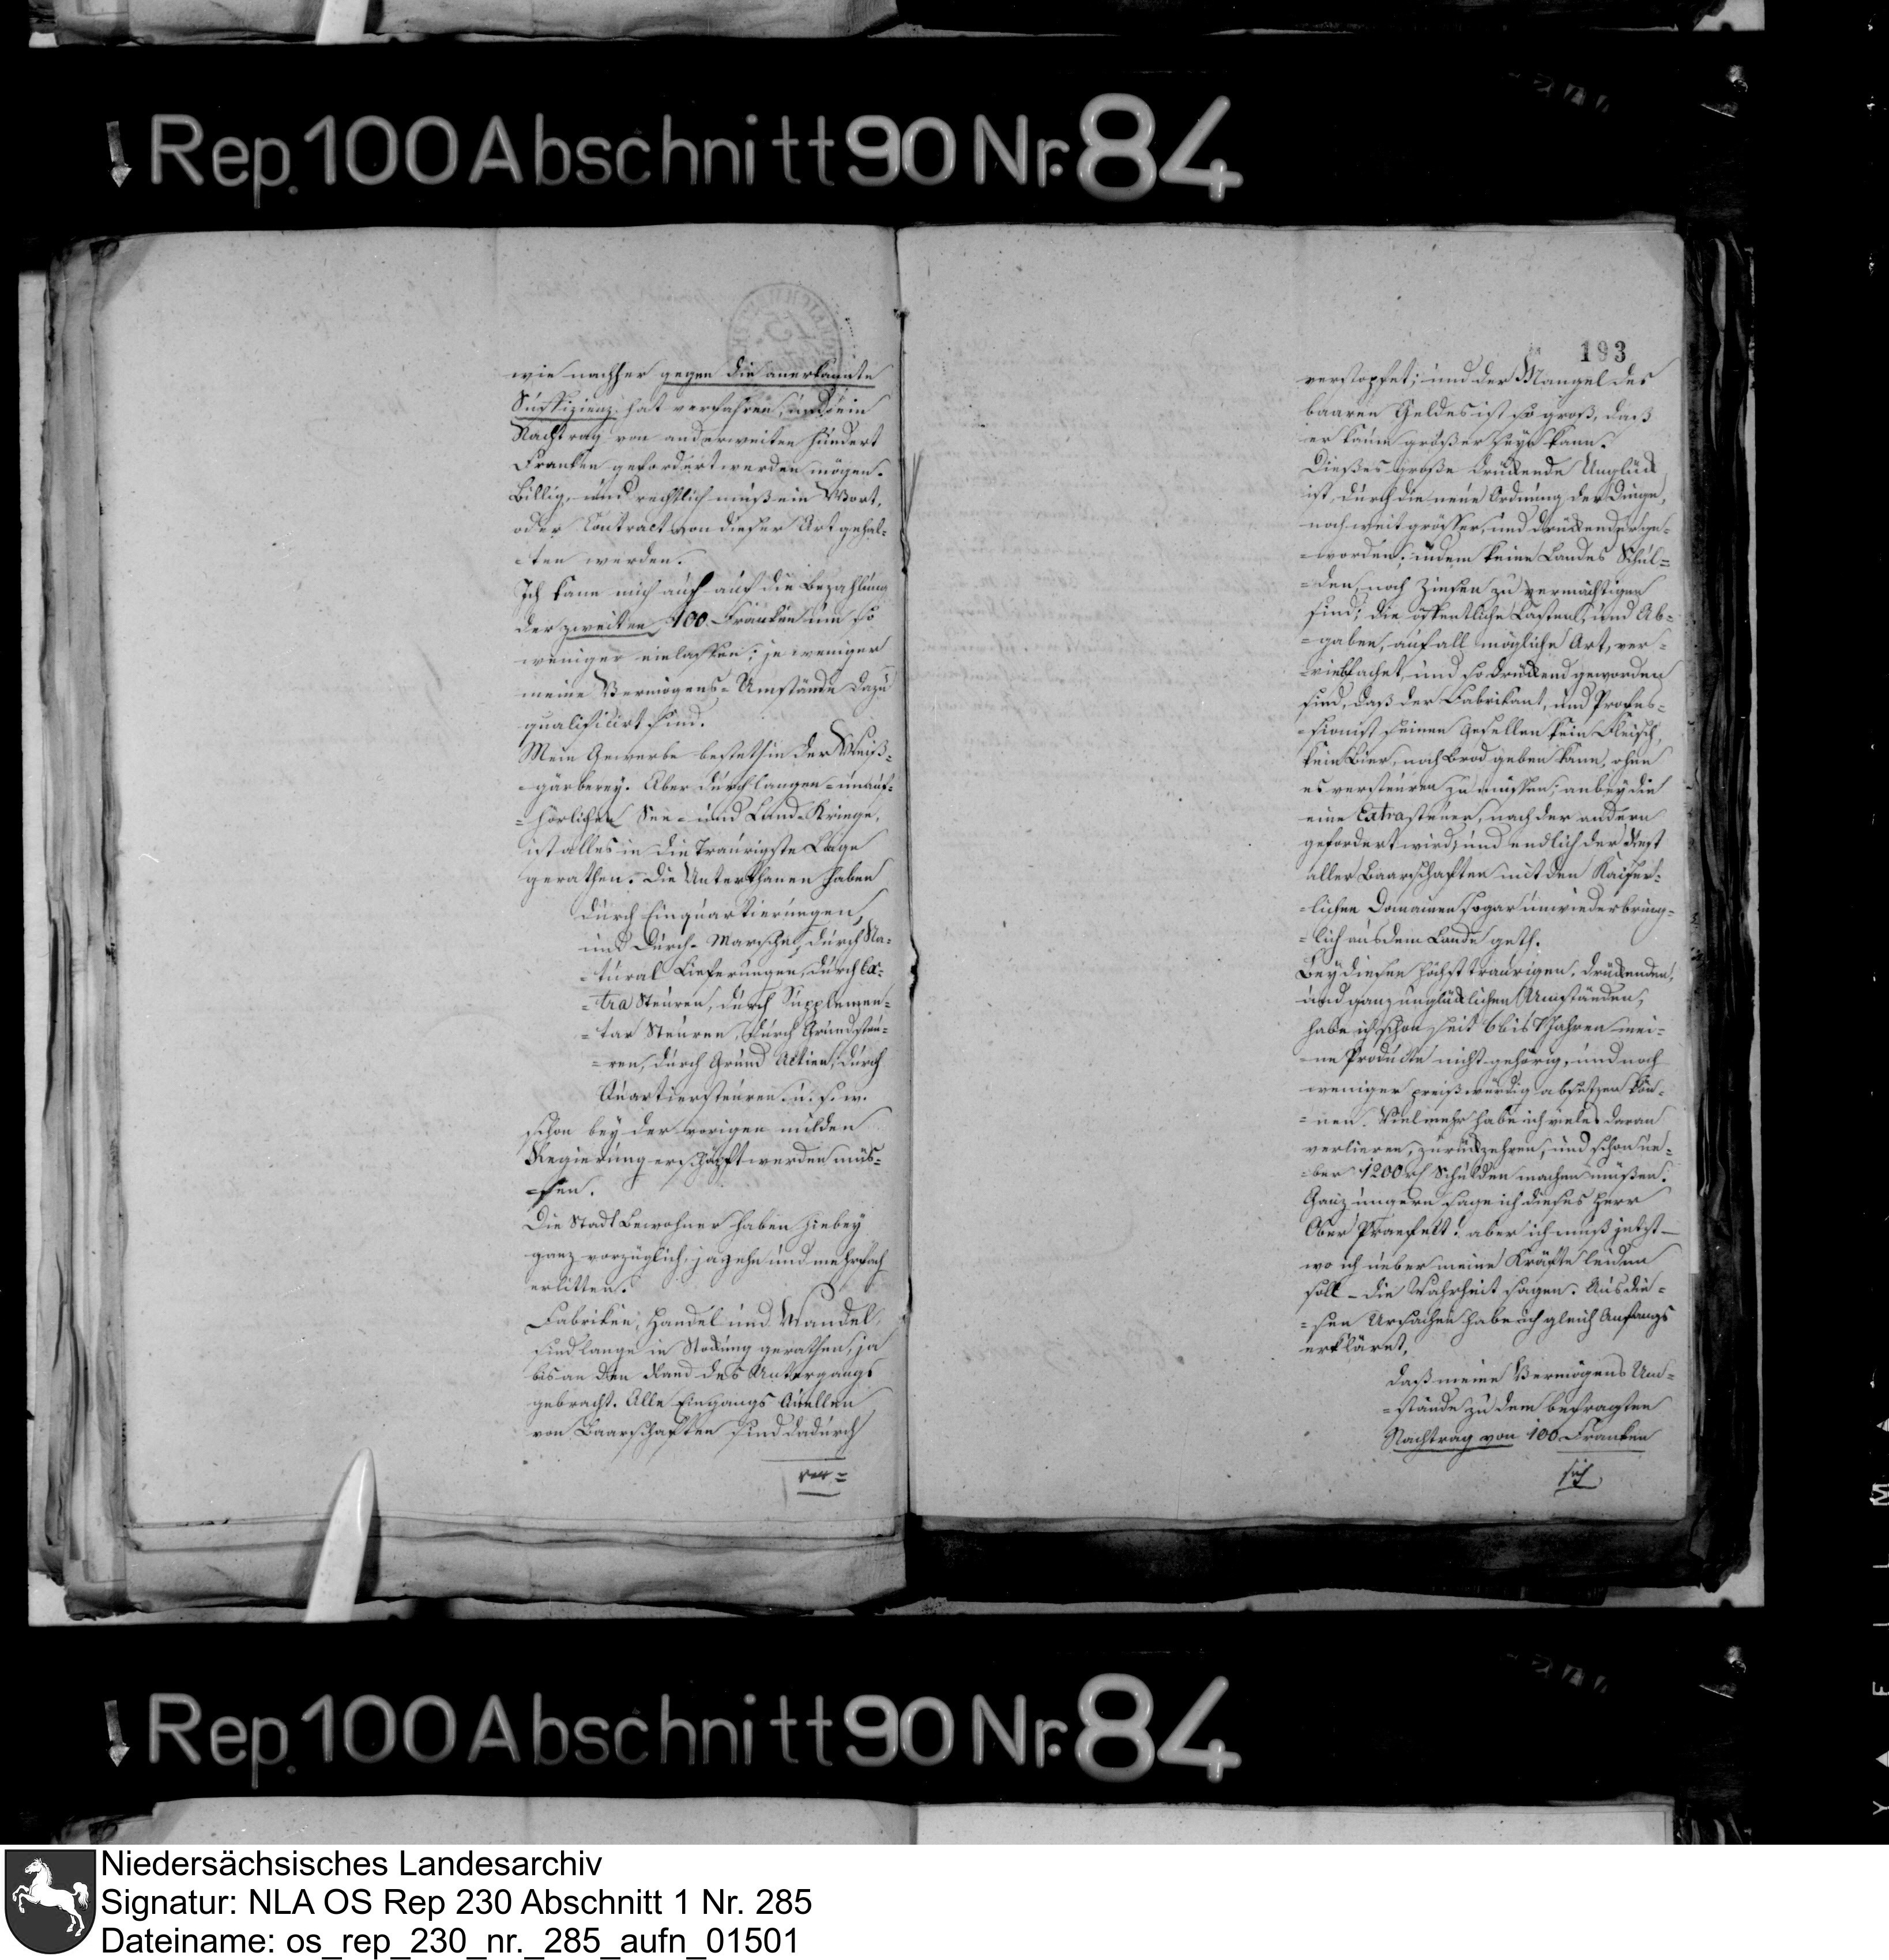 Rep. 100 Abschnitt 90 Nr. 84
wie nachher gegen die anerkannte
Suffizienz hat verfahren, und ein
Nachtrag von anderweiten hundert
Franken gefordert werden mögen.
Billig, und rechtlich muß ein Wort,
oder Contract von dieser Art gehal-
=ten werden.
Ich kann mich auch auf die Bezahlung
der zweiten 100 Franken um so
weniger einlassen; je weniger
meine Vermögens-Umstände dazu
qualificirt sind.
Mein Gewerbe besteht in der Weiß-
gärberey. Aber durch langen- unauf-
=hörlichen See- und Land-Kriege,
ist alles in die traurigste Lage
gerathen. Die Unterthanen haben
durch Einquartierungen,
und Durch-Marsche, durch Na-
=tural Lieferungen, durch Ex-
=tra Steuren, durch Supplemen-
=tar Steuren, durch Grundsteu-
=ren, durch Grund Aktien, durch
Quartiersteuren u. s. w.
schon bey der vorigen milden
Regierung erschöpft werden müs-
=sen.
Die Stadt Bewohner haben hiebey
ganz vorzüglich, ja zehn und mehrfach
erlitten.
Fabriken, Handel und Wandel,
sind lange in Stockung gerathen, ja
bis an den Rand des Untergangs
gebracht. Alle Eingangs Quellen
von Baarschaften sind dadurch
ver=
193
verstopfet; und der Mangel des
baaren Geldes ist so groß, daß
er kaum größer seyn kann.
Dießes große drückende Unglück
ist, durch die neue Ordnung der Dinge,
noch weit grösser, und drückender ge-
=worden; indem keine Landes Schul=
=den, noch Zinsen zu vermächtigen
sind; die öffentliche Lasten, und Ab=
=gaben, auf all mögliche Art, ver-
=vielfachet, und so drückend geworden
sind, daß der Fabrikant, und Profes=
=sionist seinen Gesellen kein Fleisch,
kein Bier, noch Brod geben kann, ohne
es versteuren zu müssen; anbey die
eine Extrasteuer, nach der andern
gefordert wird; und endlich der Rest
aller Baarschaften mit den Kaiser-
=lichen Domainen sogar unwiederbring-
=lich aus dem Lande geth.
Bey diesen höchst traurigen, drückenden,
und ganz unglücklichen Umständen,
habe ich schon seit 6 bis 7 Jahren mei-
=ne Producte nicht gehörig, und noch
weniger preißwürdig absetzen kön-
=nen. Vielmehr habe ich vieles daran
verlieren, zurückzehren, und schon ue-
=ber 1200 rl Schulden machen müßen.
Ganz ungern sage ich dieses Herr
Ober Praefekt! aber ich muß jetzt –
wo ich ueber meine Kräfte leiden
soll – die Wahrheit sagen. Aus die-
=sen Ursachen habe ich gleich Anfangs
erkläret,
daß meine Vermögens Um-
=stände zu dem befragten
Nachtrag von 100 Franken
sich
Rep. 100 Abschnitt 90 Nr. 84
Niedersächsisches Landesarchiv
Signatur: NLA OS Rep 230 Abschnitt 1 Nr. 285
Dateiname: os_rep_230_nr._285_aufn_01501